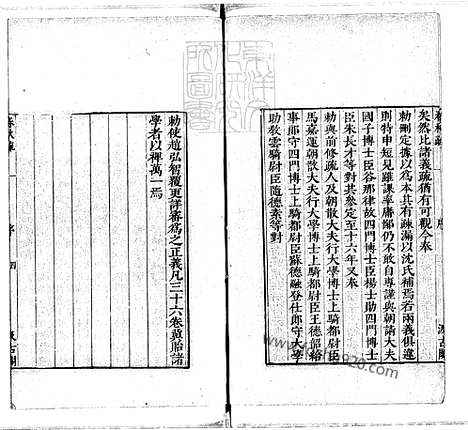 春秋疏
序
汲古閣
矣然比諸義疏猶有可觀今奉
勑刪定據以爲本其有疎漏以沈氏補焉若兩義俱違
則特申短見雖課率庸鄙仍不敢自專謹與朝請大夫
國子博士臣谷那律故四門博士臣楊士勛四門博士
臣朱長才等對共參定至十六年又奉
勑與前脩疏人及朝散大夫行大學博士上騎都尉臣
馬嘉運朝散大夫行大學博士上騎都尉臣王德韶給
事郎守四門博士上騎都尉臣蘇德融登仕郎守大學
助教雲騎尉臣隨德素等對
勑使趙弘智覆更詳審爲之正義凡三十六卷冀貽諸
學者以裨萬一焉
春秋疏
序
四
汲古閣